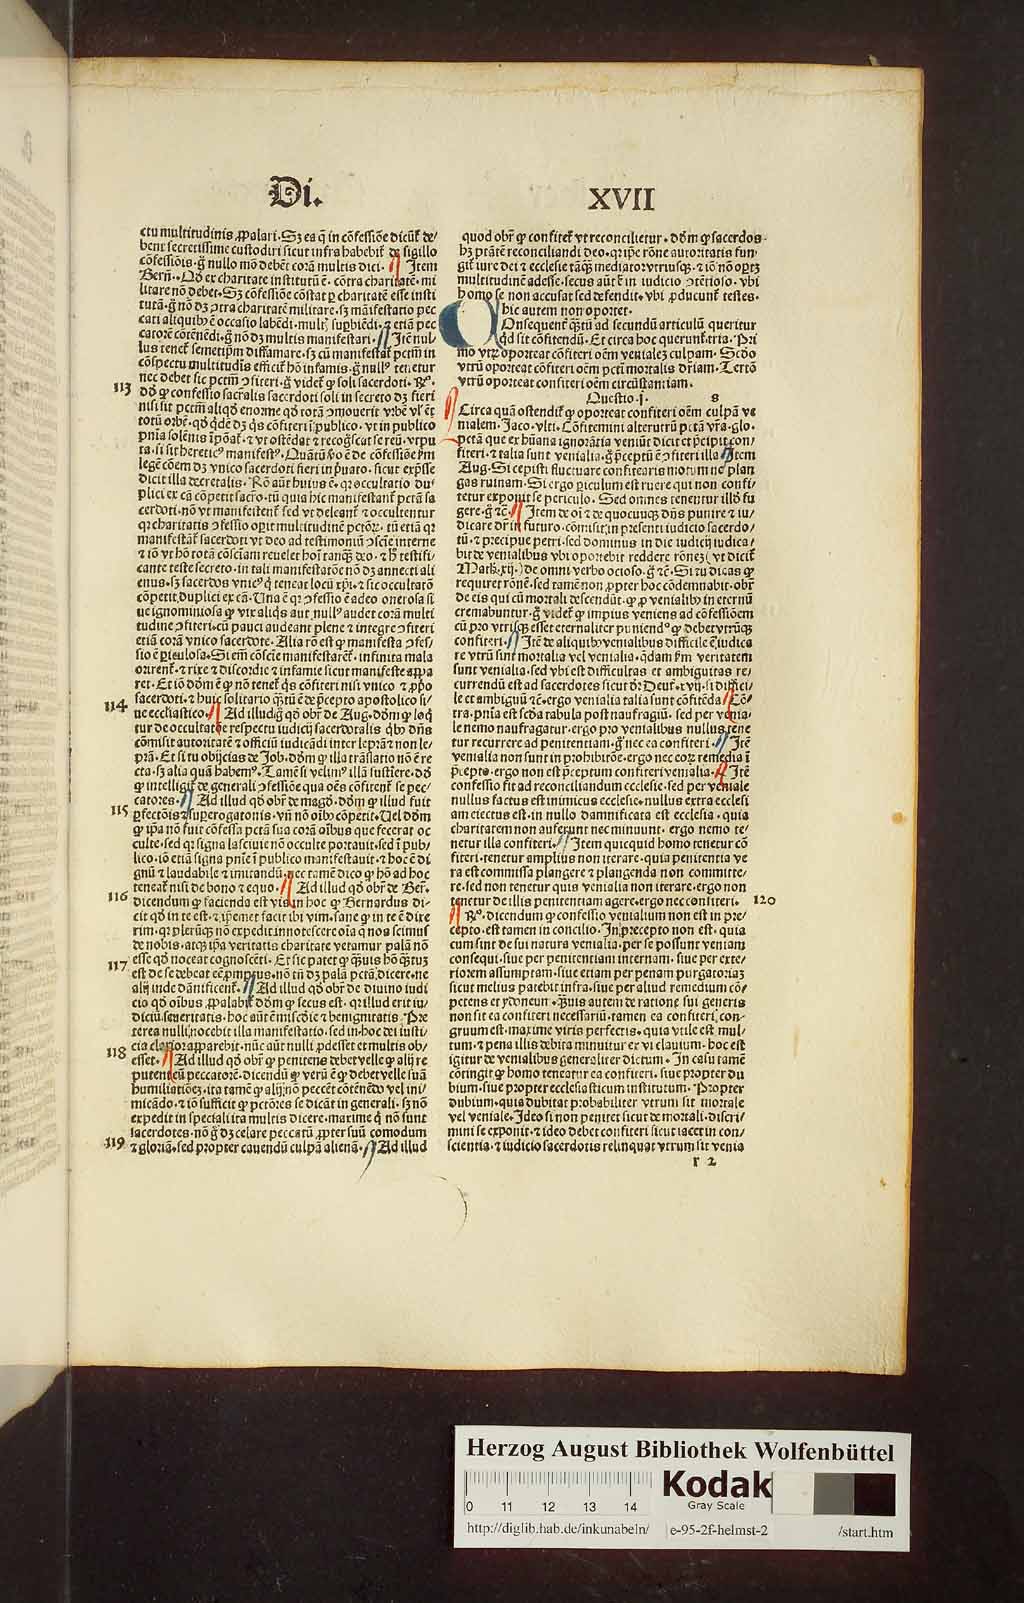 Di.
XVII
ctu multitudinis ꝓpalari. Sꝫ ea q̄ in cōfessiōe dicūt̄ de/
bent secretissime custodiri sicut infra habebit̄ de sigillo
cōfessiōis. g̊ nullo mō debēt corā multis dici. Item
Bern̄. Qđ ex charitate institutū ē. cōtra charitatē. mi
litare nō debet. Sꝫ cōfessiōe cōstat ꝑ charitatē esse insti
tutā. g̊ nō dꝫ ↄtra charitatē militare. sꝫ māifestatio pec
cati aliquibꝰ ē occasio labēdi. multꝭ suꝑbiēdi. ⁊ etiā pec
catorē cōtēnēdi. g̊ nō dꝫ multis manifestari. Itē nul
lus tenet̄ semetip̄m diffamare. sꝫ cū manifestat pctm̄ in
cōspectu multitudīs efficit̄ hō infamis. g̊ nullꝰ tenetur
nec debet sic pctm̄ ↄfiteri. g̊ videt̄ ꝙ soli sacerdoti. Rº.
113
dō̄m ꝙ confessio sacr̄alis sacerdoti soli in secreto dꝫ fieri
nisi sit pctm̄ aliqđ enorme qđ totā ↄmouerit vrbē vl̄ ēt
totū orbē. qđ q̄dē dꝫ q̄s cōfiteri ī publico. vt in publico
pn̄ia solēnis īponat̄. ⁊ vt ostēdat̄ ⁊ recog̊scat se reū. vtpu
ta. si sit hereticꝰ manifestꝰ. Quātū v̊o ē de cōfessiōe ꝑm
legē cōem dꝫ vnico sacerdoti fieri in ṗuato. sicut exp̄sse
dicit illa decretalis. Rō aūt huiꝰ ē. qꝛ occultatio du/
plici ex cā cōpetit sacr̄o. tū quia hic manifestant̄ pctā sa
cerdoti. nō vt manifestent̄ sed vt deleant̄ ⁊ occultentur
qꝛ charitatis ↄfessio oꝑit multitudinē pctōꝝ. tū etiā qꝛ
manifestat̄ sacerdoti vt deo ad testimoniū ↄsciē interne
⁊ iō vt hō totā cōsciam reuelet hoī tanqꝫ deo. ⁊ hꝭ testifi/
cante teste secreto. in tali manifestatōe nō dꝫ annecti ali
enus. sꝫ sacerdos vnicꝰ q̄ teneat locū xp̄i. ⁊ sic occultatō
cōpetit duplici ex cā. Una ē qꝛ ↄfessio ē adeo onerosa si
ue ignominiosa ꝙ vix aliq̄s aut nullꝰ audet corā multi
tudine ↄfiteri. cū pauci audeant plene ⁊ integre ↄfiteri
etiā corā vnico sacerdote. Alia rō est ꝙ manifesta ↄfes/
sio ē ꝑiculosa. Si em̄ cōsciē manifestarēt̄. infinita mala
orirent̄. ⁊ rixe ⁊ discordie ⁊ infamie sicut manifeste appa
ret. Et iō dō̄m ē ꝙ nō tenet̄ q̄s cōfiteri nisi vnico ⁊ ꝓṗo
sacerdoti. ⁊ huic solitario q̄ꝫtū ē de p̄cepto apostolico si/
114
ue ecclīastico. Ad illud g̊ qđ obr̄ de Aug. dō̄m ꝙ loq̄
tur de occultatōe respectu iudicij sacerdotalis q̇bꝰ dn̄s
cōmisit autoritatē ⁊ officiū iudicādi inter leprā ⁊ non le/
prā. Et si tu obijcias de Job. dō̄m ꝙ illa trāslatio nō ē re
cta. sꝫ alia quā habemꝰ. Tamē si velimꝰ illā sustiere. dō̄m
ꝙ intelligit̄ de generali ↄfessiōe qua oēs cōfitent̄ se pec/
catores. Ad illud qđ obr̄ de magd. dō̄m ꝙ illud fuit
115
ꝑfectōis ⁊ suꝑerogatonis. vn̄ nō oībꝰ cōpetit. Uel dō̄m
ꝙ ip̄a nō fuit cōfessa pctā sua corā oībus que fecerat oc
culte. sed qꝛ signa lasciuie nō occulte portauit. sed ī pub/
lico. iō etiā signa pn̄ie ī publico manifestauit. ⁊ hoc ē di
gnū ⁊ laudabile ⁊ imitandū. nec tamē dico ꝙ hō ad hoc
teneat̄ nisi de bono ⁊ equo. Ad illud qđ obr̄ de Ber̄.
116
dicendum ꝙ facienda est vis in hoc ꝙ Bernardus di/
cit qđ in te est. ⁊ ip̄emet facit ibi vim. sane ꝙ in te ē dixe
rim. qꝛ plerūqꝫ nō expedit innotescere oīa q̄ nos scimus
de nobis. atqꝫ ip̄a veritatis charitate vetamur palā nō
esse qđ noceat cognosceti. Et sic patet ꝙ q̄ꝫuis hō q̄ꝫtuꝫ
117
est de se debeat cē promptus. nō tn̄ dꝫ palā pctā dicere. ne
alij inde dānificent̄. Ad illud qđ obr̄ de diuino iudi
cio qđ oībus ꝓpalabit̄. dō̄m ꝙ secus est. qꝛ illud erit iu/
diciū seueritatis. hoc aūt ē mīscdie ⁊ benignitatis. Pre
terea nulli nocebit illa manifestatio. sed in hoc dei iusti/
cia clarior apparebit. nūc aūt nulli ꝓdesset et multis ob/
118
esset. Ad illud qđ obr̄ ꝙ penitens debet velle ꝙ alij re
putent eū peccatorē. dicendū ꝙ verū ē ꝙ debet velle suā
humiliationeꝫ. ita tamē ꝙ alij nō peccēt cōtēnēdo vel ini/
micādo. ⁊ iō sufficit ꝙ pctōres se dicāt in generali. sꝫ nō
expedit in speciali ita multis dicere. maxime q̄ nō sunt
sacerdotes. nō g̊ dꝫ celare peccatū ꝓpter suū comodum
119
⁊ gloriā. sed propter cauendū culpā alienā. Ad illud
quod obr̄ ꝙ confitet̄ vt reconcilietur. dō̄m ꝙ sacerdos
hꝫ ptātē reconciliandi deo. qꝛ ip̄e rōne autoritatis fun/
git̄ iure dei ⁊ ecclesie tāqꝫ mediator vtriusqꝫ. ⁊ iō nō oꝑtꝫ
multitudinē adesse. secus aūt ē in iudicio ↄtētioso. vbi
homo se non accusat sed defendit. vbi ꝓducunt̄ testes.
hic autem non oportet.
Onsequent̄ q̄ꝫtū ad secundū articulū queritur
qđ sit cōfitendū. Et circa hoc querunt̄ tria. Pri
mo vtꝝ oporteat cōfiteri oēm venialeꝫ culpam. Scđo
vtrū oporteat cōfiteri oēm pctm̄ mortalis dr̄iam. Tertō
vtrū oporteat confiteri oēm circūstantiam.
Questio .j. s
Circa quā ostendit̄ ꝙ oporteat confiteri oēm culpā ve
nialem. Jaco. vlti. Cōfitemini alterutrū pctā vr̄a. glo.
pctā que ex hūana ignorātia veniūt dicit et p̄cipit con/
fiteri. ⁊ talia sunt venialia. g̊ p̄ceptū ē ↄfiteri illa. Item
Aug. Si cepisti fluctuare confitearis motum ne plan
gas ruinam. Si ergo ꝑiculum est ruere qui non confi/
tetur exponit se periculo. Sed omnes tenentur illđ fu
gere. g̊ ⁊c̄. Item de oī ⁊ de quocunqꝫ dn̄s punire ⁊ iu/
dicare dr̄ in futuro. cōmisit in presenti iudicio sacerdo/
tū. ⁊ precipue petri. sed dominus in die iudicij iudica/
bit de venialibus vbi oportebit reddere rōneꝫ (vt dicit̄
Math̄. xij.) de omni verbo ocioso. g̊ ⁊c̄. Si tu dicas ꝙ
requiret rōnē. sed tamē non ꝓpter hoc cōdemnabit. obr̄
de eis qui cū mortali descendūt. ꝙ ꝓ venialibꝰ in eternū
cremabuntur. g̊ videt̄ ꝙ impius veniens ad cōfessiōem
cū pro vtrisqꝫ esset eternaliter puniendꝰ ꝙ debet vtrūqꝫ
confiteri. Itē de aliquibꝰ venialibus difficile ē iudica
re vtrū sint mortalia vel venialia. q̄dam ꝑm veritatem
sunt venialia. sed vbi est difficultas et ambiguitas re/
currendū est ad sacerdotes sicut dr̄ Deut̄. xvij. si diffici/
le et ambiguū ⁊c̄. ergo venialia talia sunt cōfitēda. Cō/
tra. pn̄ia est scđa tabula post naufragiū. sed per venia/
le nemo naufragatur. ergo pro venialibus nullus tene
tur recurrere ad penitentiam. g̊ nec ea confiteri. Itē
venialia non sunt in prohibitōe. ergo nec eoꝝ remedia ī
p̄cepto. ergo non est p̄ceptum confiteri venialia. Itē
confessio fit ad reconciliandum ecclesie. sed per veniale
nullus factus est inimicus ecclesie. nullus extra ecclesi
am eiectus est. in nullo damnificata est ecclesia. quia
charitatem non auferunt nec minuunt. ergo nemo te/
netur illa confiteri. Item quicquid homo tenetur cō
fiteri. tenetur amplius non iterare. quia penitentia ve
ra est commissa plangere ⁊ plangenda non committe/
re. sed non tenetur quis venialia non iterare. ergo non
tenetur de illis penitentiam agere. ergo nec confiteri.
120
Rº. dicendum ꝙ confessio venialium non est in pre/
cepto. est tamen in concilio. In precepto non est. quia
cum sint de sui natura venialia. per se possunt veniam
consequi. siue per penitentiam internam. siue per exte/
riorem assumptam. siue etiam per penam purgatoriaꝫ
sicut melius patebit infra. siue per aliud remedium cō/
petens et ydoneum. Q̄ꝫuis autem de ratione sui generis
non sit ea confiteri necessariū. tamen ea confiteri con/
gruum est. maxime viris perfectis. quia vtile est mul/
tum. ⁊ pena illis debita minuitur ex vi clauium. hoc est
igitur de venialibus generaliter dictum. In casu tamē
cōtingit ꝙ homo teneatur ea confiteri. siue propter du
bium. siue propter ecclesiasticum institutum. Propter
dubium. quia dubitat probabiliter vtrum sit mortale
vel veniale. Ideo si non penitet sicut de mortali. discri/
mini se exponit. ⁊ ideo debet confiteri sicut iacet in con/
scientia. ⁊ iudicio sacerdotis relinquat vtrum sit venia
r 2
Herzog August Bibliothek Wolfenbüttel
0 11 12 13 14
Kodak
Gray Scale
http://diglib.hab.de/inkunabeln/ e-95-2f-helmst-2 /start.htm